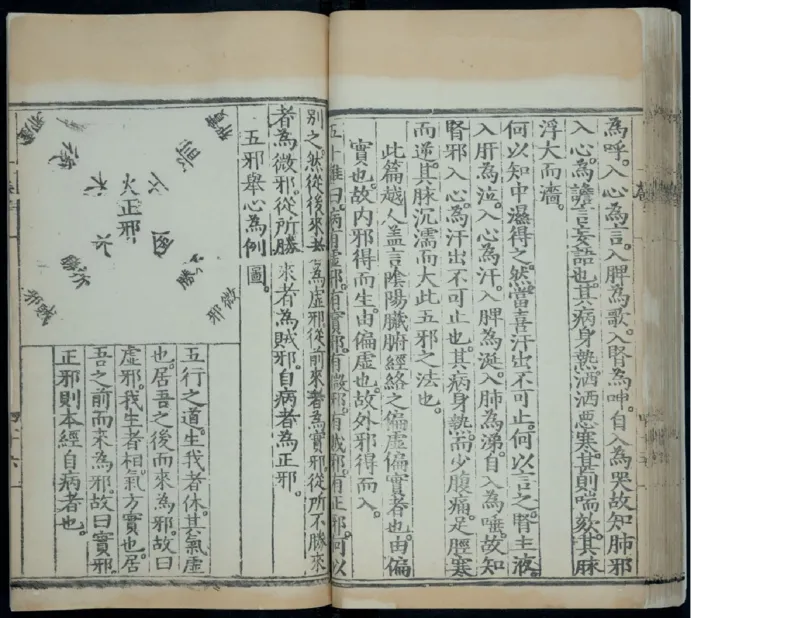 為呼。入心為言。入脾為歌。入腎為呻。自入為哭。故知肺邪
入心。為譫言妄語也。其病身熱洒洒惡寒。甚則喘欬。其脉
浮大而濇。
何以知中濕得之。然。當喜汗出不可止。何以言之。腎主液。
入肝為泣。入心為汗。入脾為涎。入肺為涕。自入為唾。故知
腎邪入心。為汗出不可止也。其病身熱。而少腹痛。足脛寒
而逆。其脉沉濡而大此五邪之法也。
此篇越人蓋言陰陽臟腑經絡之偏虛偏實者也。由偏
實也。故內邪得而生。由偏虛也。故外邪得而入。
五十難曰。病有虛邪。有實邪。有微邪。有賊邪。有正邪。何以
別之。然從後來者為虛邪。從前來者為實邪。從所不勝來
者為賊邪。自病者為正邪。
者為微邪。從所勝來
五邪舉心為例圖。
火正邪
前
勝
微邪
賊邪
五行之道。生我者休。其氣虛
也。居吾之後而來為邪。故曰
虛邪。我生者相。氣方實也。居
吾之前而來為邪。故曰實邪。
正邪則本經自病者也。